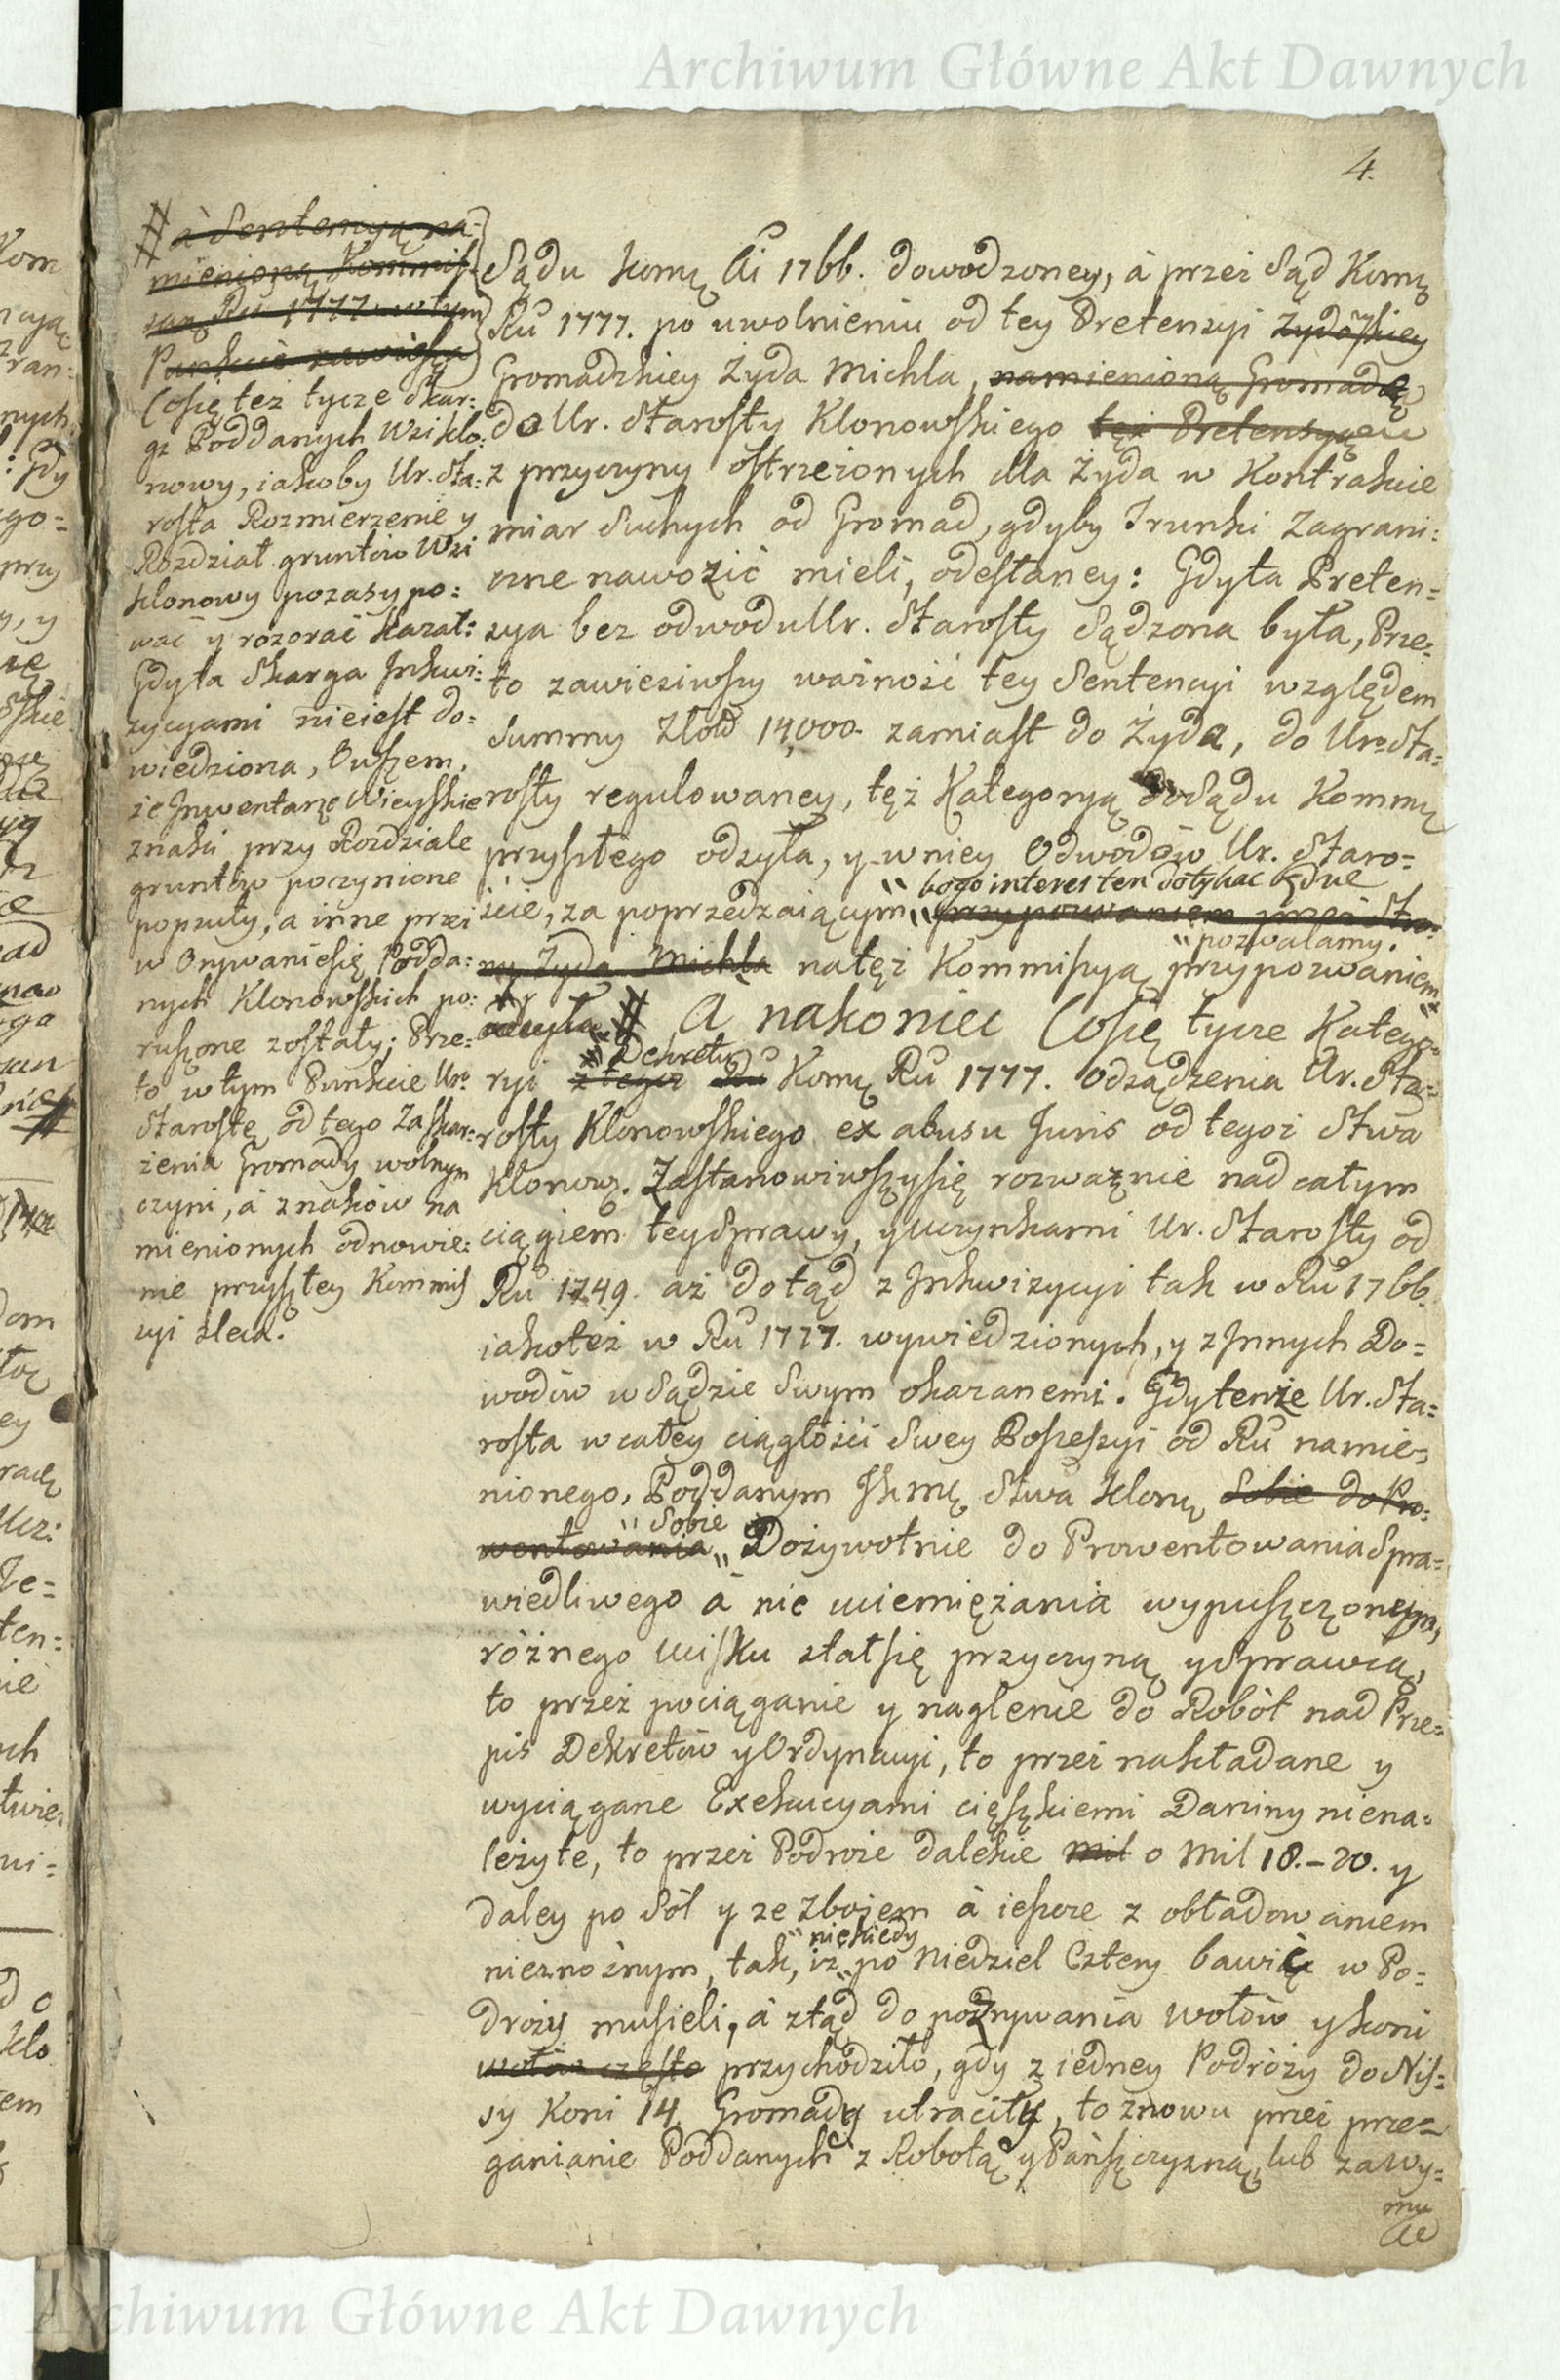 Archiwum Główne Akt Dawnych
4.
# à Sentencyą na=
mienioną Kommis=
syą Ru 1777 w tym
Punkcie zawiesza
Cosię też tycze Skar:
gi Poddanych Wsi Klo:
nowy, iakoby Ur. Sta:
rosta Rozmierzenie y
Rozdział gruntów Wsi
Klonowy pozasypo:
wać y rozorać kazał:
Gdy ta Skarga Inkwi:
zycyami nieiest do:
wiedziona, Owszem,
że Inwentarze Wieyskie
znaki przy Rozdziale
gruntów poczynione
popsuły, a inne przez
w Orywaniesię Podda:
nych Klonowskich po:
ruszone zostały; Prze:
to w tym Punkcie Uro
Starostę od tego Zaskar:
żenia Gromady wolnym
czyni, à znaków na
mienionych odnowie:
nie przyszłey Kommis
syi zleca.
Sądu Komę Ai 1766. dowodzoney, à przez Sąd Komę
Ru 1777. po uwolnieniu od tey Pretensyi Żydowskiey
Gromadzkiey Żyda Michla, namienioną Gromadę
do Ur. Starosty Klonowskiego też Pretensyę
z przyczyny ostrzeżonych dla Żyda w Kontrakcie
miar Suchych od Gromad, gdyby Trunki Zagrani:
czne nawozić mieli, odesłaney: Gdy ta Preten=
sya bez odwodu Ur. Starosty Sądzona była, Prze=
to zawiesiwszy ważność tey Sentencyi względem
Summy Złotd 14,000. zamiast do Żyda, do Uro Sta=
rosty regulowaney, tęż Kategoryą do Sądu Kommę
przyszłego odsyła, y w niey Odwodów Ur. Staro=
kogo interes ten dotykać będzie
ście, za poprzedzaiącym przypozwaniem przez Sta=
pozwalamy.
ny Żyda Michla natęż Kommissyą przypozwaniem
odsyła # A nakoniec Cosię tycze Katego=
Dekretu
ryi z tegoż Ru Komę Ru 1777. Odsądzenia Ur. Sta=
rosty Klonowskiego ex abusu Juris od tegoż Stwa
Klonow. Zastanowiwszysię rozważnie nad całym
ciągiem tey Sprawy, y uczynkami Ur. Starosty od
Ru 1749. aż dotąd z Inkwizycyi tak w Ru 1766.
iakoteż w Ru 1777. wywiedzionych, y z Innych Do=
wodów w Sądzie Swym okazanemi. Gdy tenże Ur. Sta=
rosta w całey ciągłości Swey Possessyi od Ru namie=
nionego, Poddanym JKmę Stwa Klonę Sobie do Pro=
Sobie
wentowania Dożywotnie do Prowentowania Spra=
wiedliwego à nie uciemiężania wypuszczonym,
różnego ucisku stałsię przyczyną y Sprawcą,
to przez pociąganie y naglenie do Robót nad Prze=
pis Dekretów y Ordynacyi, to przez nakładane y
wyciągane Exekucyami ciężkiemi Daniny niena=
leżyte, to przez Podroże dalekie mil o Mil 18.-20. y
daley po Sól y ze zbożem à ieszcze z obładowaniem
niekiedy
nieznośnym, tak, iż po Niedziel Cztery bawić w Po=
droży musieli, à ztąd do pozrywania Wołów y koni
wołów często przychodziło, gdy z iedney Podróży do Nis=
sy Koni 14 Gromady utraciły, to znowu przez prze=
ganianie Poddanych z Robotą y Pańszczyzną, lub zawy=
mu
Archiwum Główne Akt Dawnych